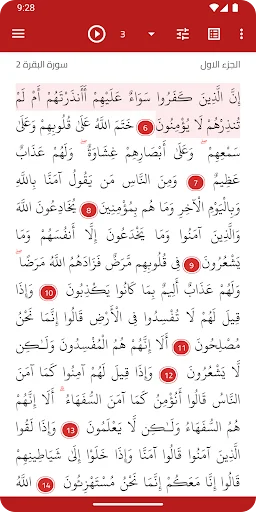 9:28
3
الجزء الاول
سورة البقرة 2
إِنَّ الَّذِينَ كَفَرُوا سَوَاءٌ عَلَيْهِمْ أَأَنذَرْتَهُمْ أَمْ لَمْ
تُنذِرْهُمْ لَا يُؤْمِنُونَ 6 خَتَمَ اللَّهُ عَلَىٰ قُلُوبِهِمْ وَعَلَىٰ
سَمْعِهِمْ ۖ وَعَلَىٰ أَبْصَارِهِمْ غِشَاوَةٌ ۖ وَلَهُمْ عَذَابٌ
عَظِيمٌ 7 وَمِنَ النَّاسِ مَن يَقُولُ آمَنَّا بِاللَّهِ
وَبِالْيَوْمِ الْآخِرِ وَمَا هُم بِمُؤْمِنِينَ 8 يُخَادِعُونَ اللَّهَ
وَالَّذِينَ آمَنُوا وَمَا يَخْدَعُونَ إِلَّا أَنفُسَهُمْ وَمَا
يَشْعُرُونَ 9 فِي قُلُوبِهِم مَّرَضٌ فَزَادَهُمُ اللَّهُ مَرَضًا ۖ
وَلَهُمْ عَذَابٌ أَلِيمٌ بِمَا كَانُوا يَكْذِبُونَ 10 وَإِذَا
قِيلَ لَهُمْ لَا تُفْسِدُوا فِي الْأَرْضِ قَالُوا إِنَّمَا نَحْنُ
مُصْلِحُونَ 11 أَلَا إِنَّهُمْ هُمُ الْمُفْسِدُونَ وَلَٰكِن
لَّا يَشْعُرُونَ 12 وَإِذَا قِيلَ لَهُمْ آمِنُوا كَمَا آمَنَ
النَّاسُ قَالُوا أَنُؤْمِنُ كَمَا آمَنَ السُّفَهَاءُ ۗ أَلَا إِنَّهُمْ
هُمُ السُّفَهَاءُ وَلَٰكِن لَّا يَعْلَمُونَ 13 وَإِذَا لَقُوا
الَّذِينَ آمَنُوا قَالُوا آمَنَّا وَإِذَا خَلَوْا إِلَىٰ شَيَاطِينِهِمْ
قَالُوا إِنَّا مَعَكُمْ إِنَّمَا نَحْنُ مُسْتَهْزِئُونَ 14 اللَّهُ